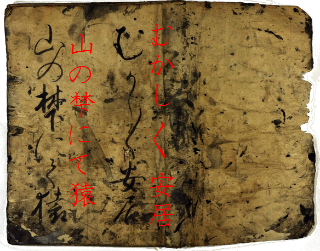 むかし〱安居
むかし〱安居
山の梺にて猿
山の梺にて猿